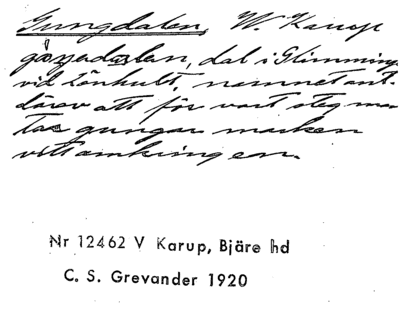 Gungdalen, V. Karup
dal i Glimminge
vid Lönhult, namnet ant.
därav att för vart steg man
tar gungar marken
vitt omkring en.
Nr 12462 V Karup, Bjäre hd
C. S. Grevander 1920